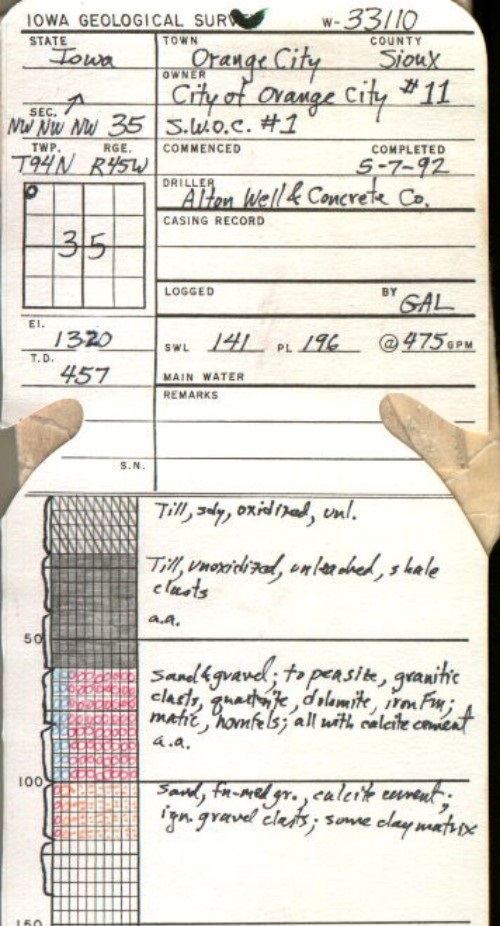 IOWA GEOLOGICAL SURV W-33110
STATE TOWN COUNTY
Iowa Orange City Sioux
OWNER
City of Orange City #11
SEC.
NW NW NW 35 S.W.O.C. #1
TWP. RGE. COMMENCED COMPLETED
T94N R45W 5-7-92
DRILLER
Alton Well & Concrete Co.
35
CASING RECORD
LOGGED BY
GAL
El.
1320 SWL 141 PL 196 @ 475 GPM
T.D.
457 MAIN WATER
REMARKS
S.N.
Till, sdy, oxidized, unl.
Till, unoxidized, unleached, shale
clasts
a.a.
50
Sand & gravel; to peasize, granitic
clasts, quartzite, dolomite, iron Fm;
matic, hornfels; all with calcite cement
a.a.
100
Sand, fn-med gr., calcite cement;
ign. gravel clasts; some clay matrix
150